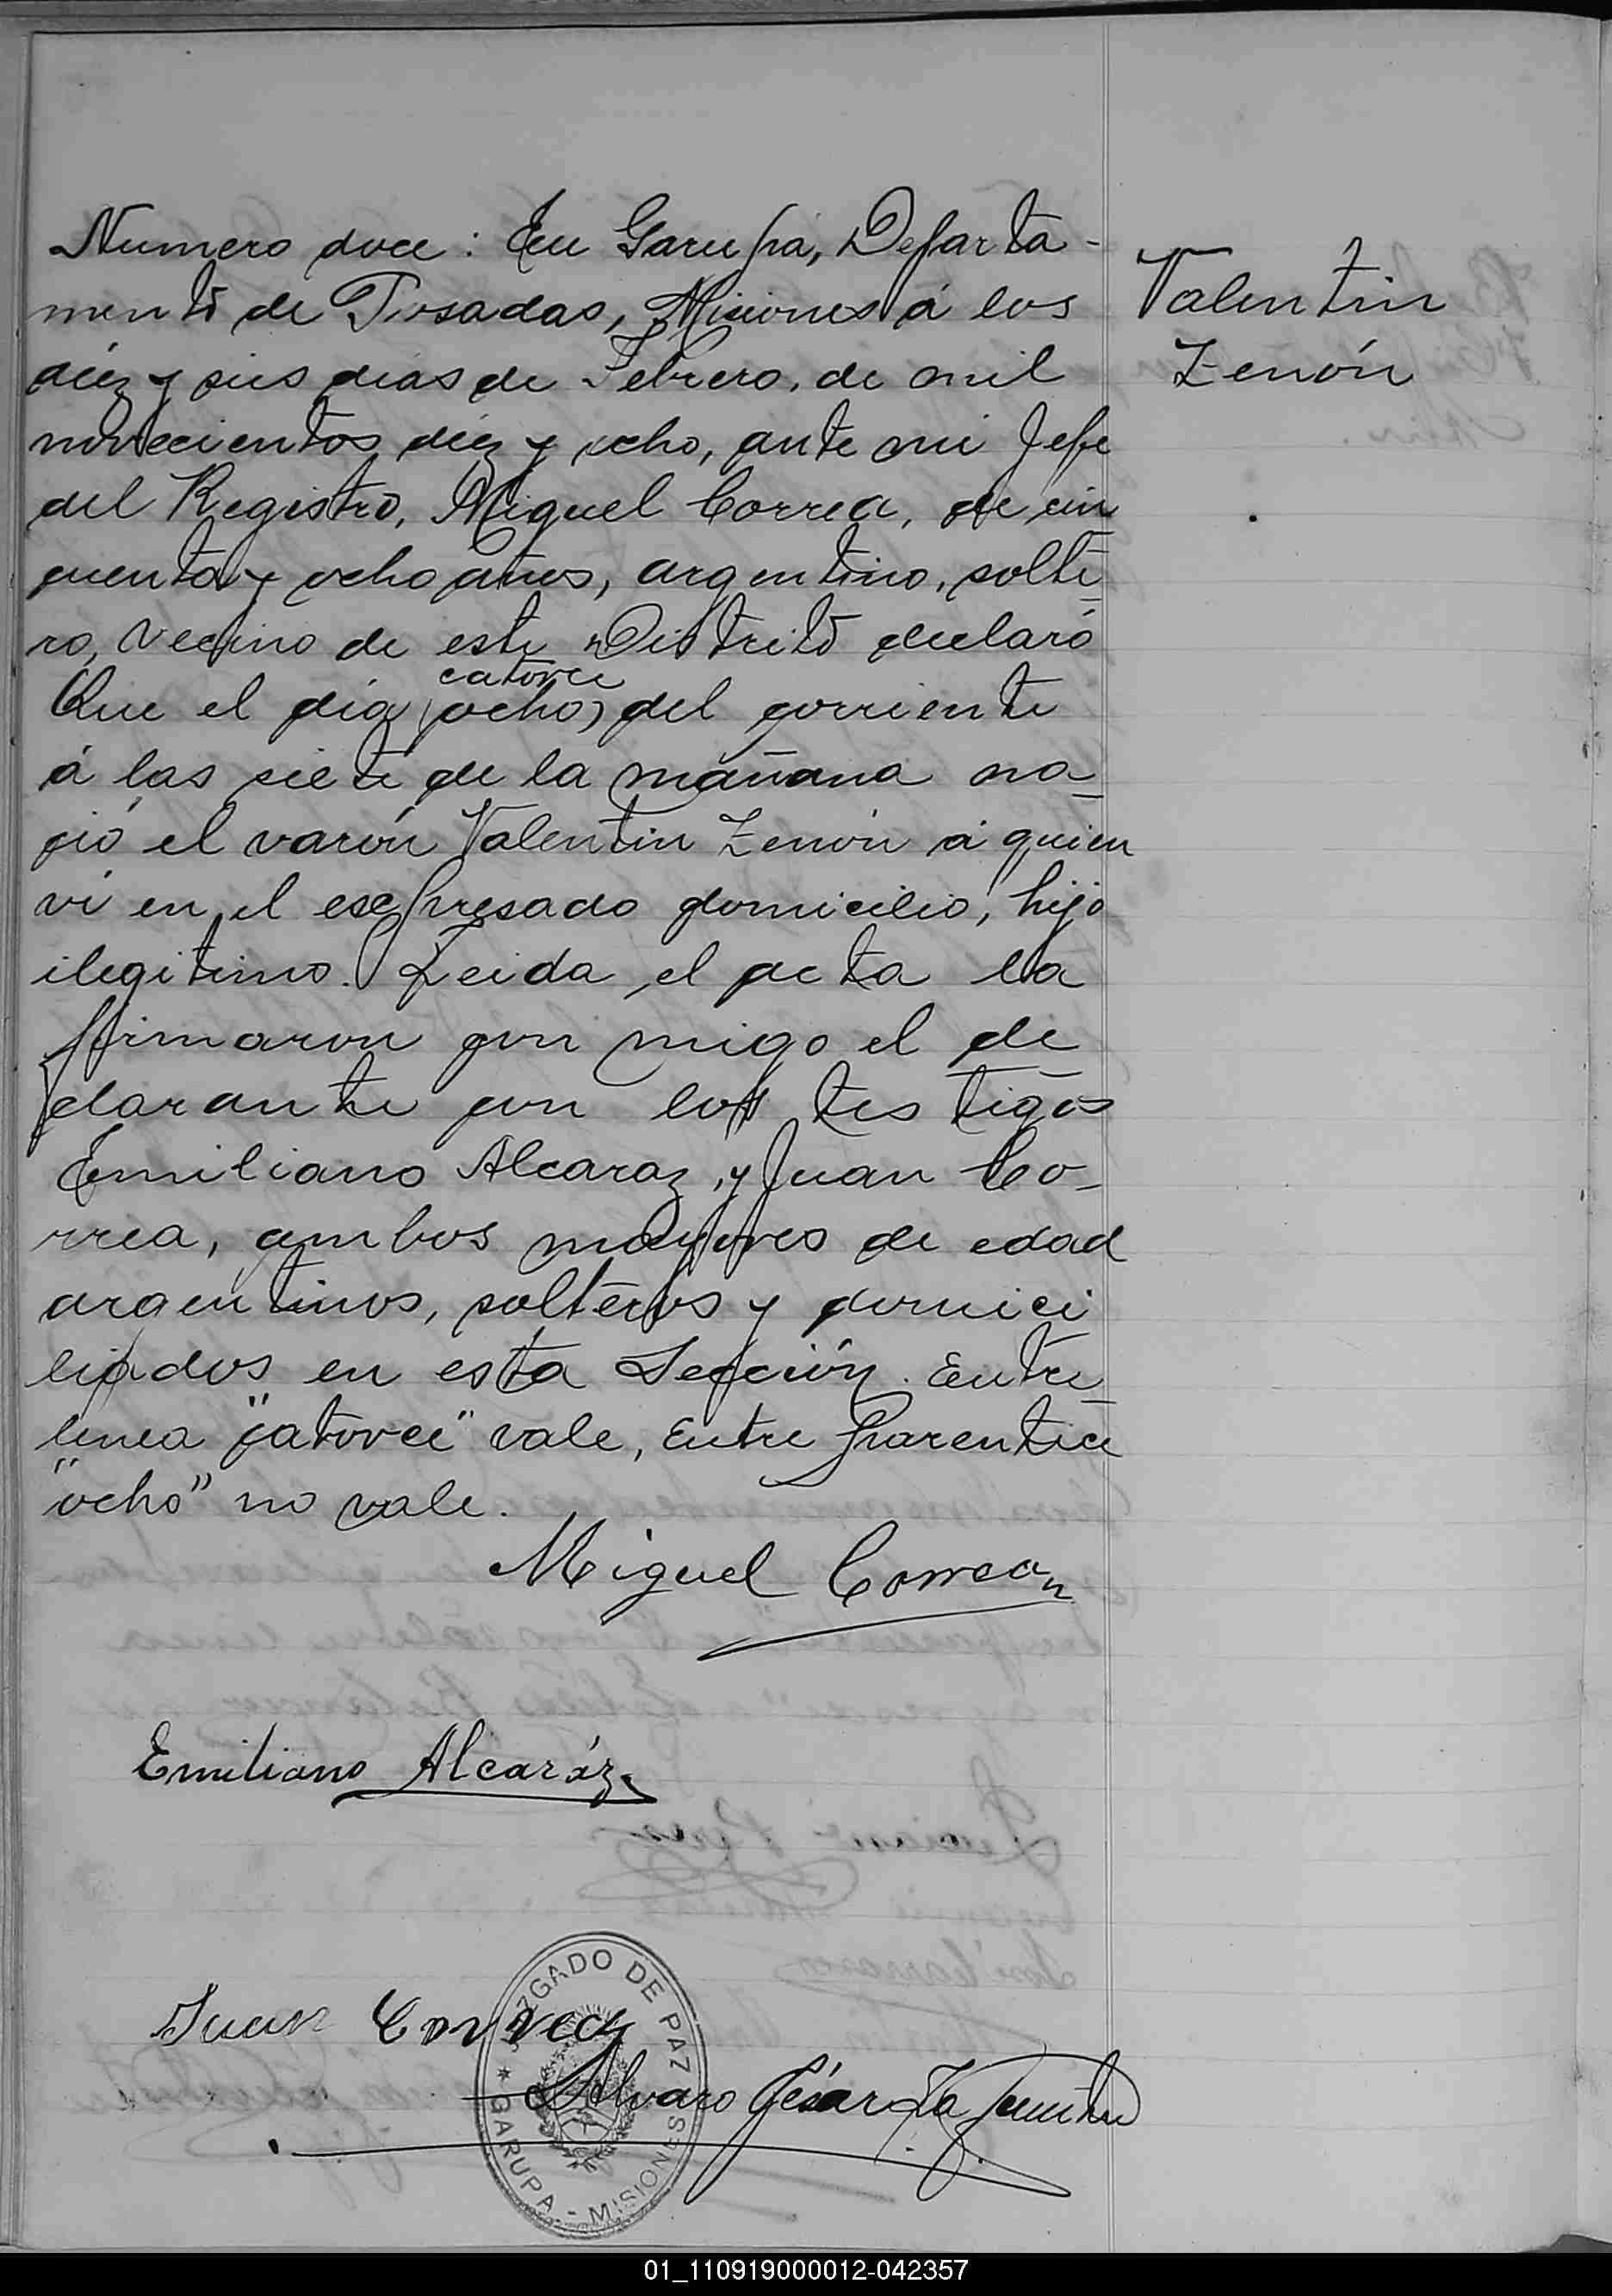 Numero doce: En Garupá, Departa-
mento de Posadas, Misiones á los
diez y seis dias de Febrero, de mil
novecientos diez y ocho, ante mi Jefe
del Registro, Miguel Correa, de cin
cuenta y ocho años, argentino, solte
ro, vecino de este Distrito declaró
catorce
Que el dia (ocho) del corriente
á las siete de la mañana na_
ció el varón Valentin Zenón á quien
ví en el expresado domicilio, hijo
ilegitimo. Leida el acta la
firmaron con migo el de
clarante con los testigos
Emiliano Alcaraz, y Juan Co_
rrea, ambos mayores de edad
argentinos, solteros y domici
liados en esta Sección. Entre
linea "catorce" vale, Entre parentice
"ocho" no vale.
Valentin
Zenón
Miguel Correa
Emiliano Alcaráz
Juan Correa
Alvaro César
JUZGADO DE PAZ
* GARUPA - MISIONES
01_110919000012-042357